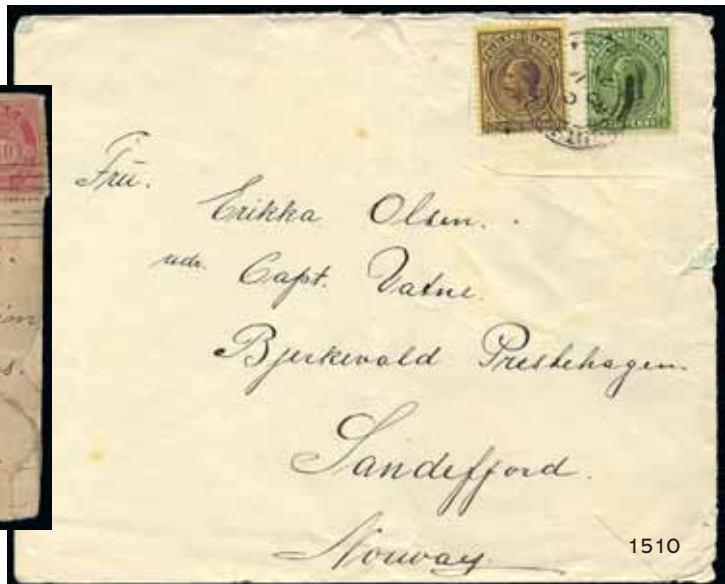 Fru.
Erikka Olsen.
adr. Capt. Vatne.
Bjerkevald Prestehagen.
Sandefjord.
Norway
1510
10
s.